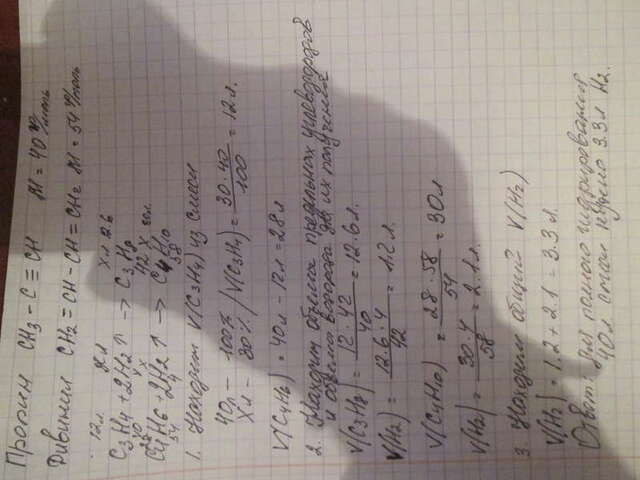 Пропин CH3 - C ≡ CH M = 40 г/моль
Дивинил CH2 = CH - CH = CH2 M = 54 г/моль
12л хл хл 12.6
C3H4 + 2H2↑ → C3H8
40 4 42
28 х х 30л.
C4H6 + 2H2↑ → C4H10
54 4 58
1. Находим V(C3H4) из смеси
40л - 100%
Хл - 30% / V(C3H4) = 30·40/100 = 12л.
V(C4H6) = 40л - 12л = 28л
2. Находим объемы предельных углеводородов
и объемы водорода для их получения
V(C3H8) = 12·42/40 = 12.6л.
V(H2) = 12.6·4/42 = 1.2л
V(C4H10) = 28·58/54 = 30л
V(H2) = 30·4/58 = 2.1л.
3. Находим общий V(H2)
V(H2) = 1.2 + 2.1 = 3.3л.
Ответ: Для полного гидрирования
40л смеси нужно 3.3л H2.